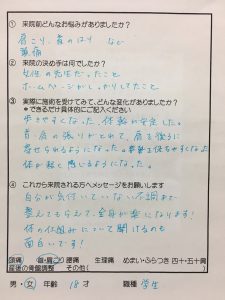 ① 来院前どんなお悩みがありましたか？
肩こり、首のはり　など
頭痛
② 来院の決め手は何でしたか？
女性の先生だったこと
ホームページがしっかりしてたこと
③ 実際に施術を受けてみて、どんな変化がありましたか？
＊できるだけ具体的にご記入ください
歩きやすくなった、体軸が安定した。
首・肩の張りがとれて、肩を後ろに
寄せられるようになった。
体が軽く感じるようになった。
④ これから来院される方へメッセージをお願いします
自分が気付いていない不調まで
整えてもらえて、全身が楽になります！
体の仕組みについて聞けるのも
面白いです！
頭痛 首・肩こり 腰痛 生理痛 めまい・ふらつき 四十・五十肩
産後の骨盤調整 その他（ ）
男・女 年齢 18才 職種 学生